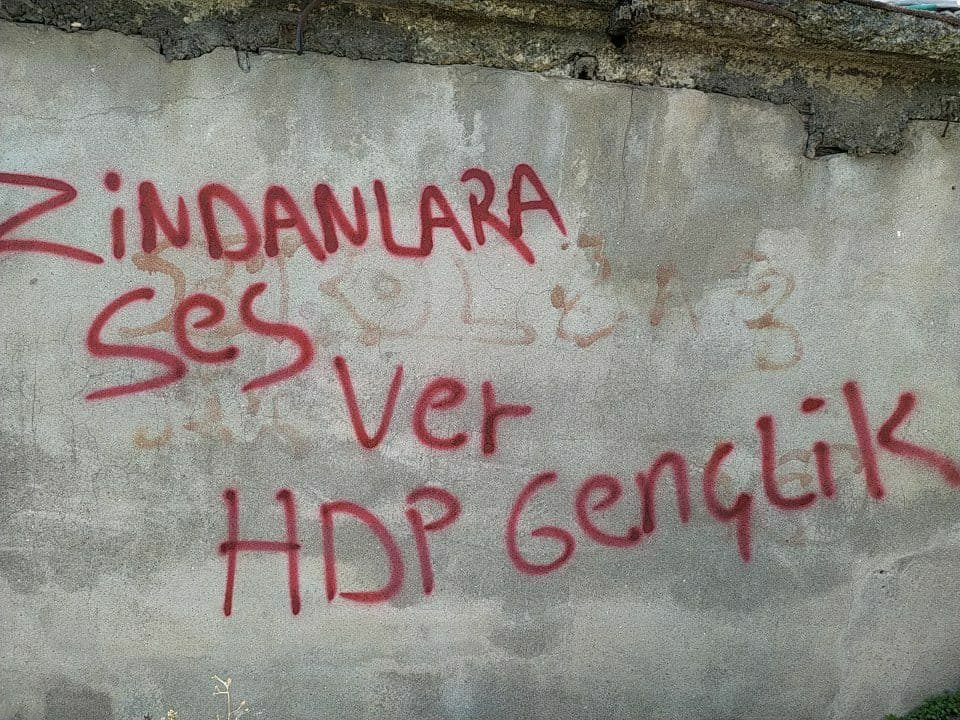 ZiNDANLARA
Ses
Ver
HDP Gençlik